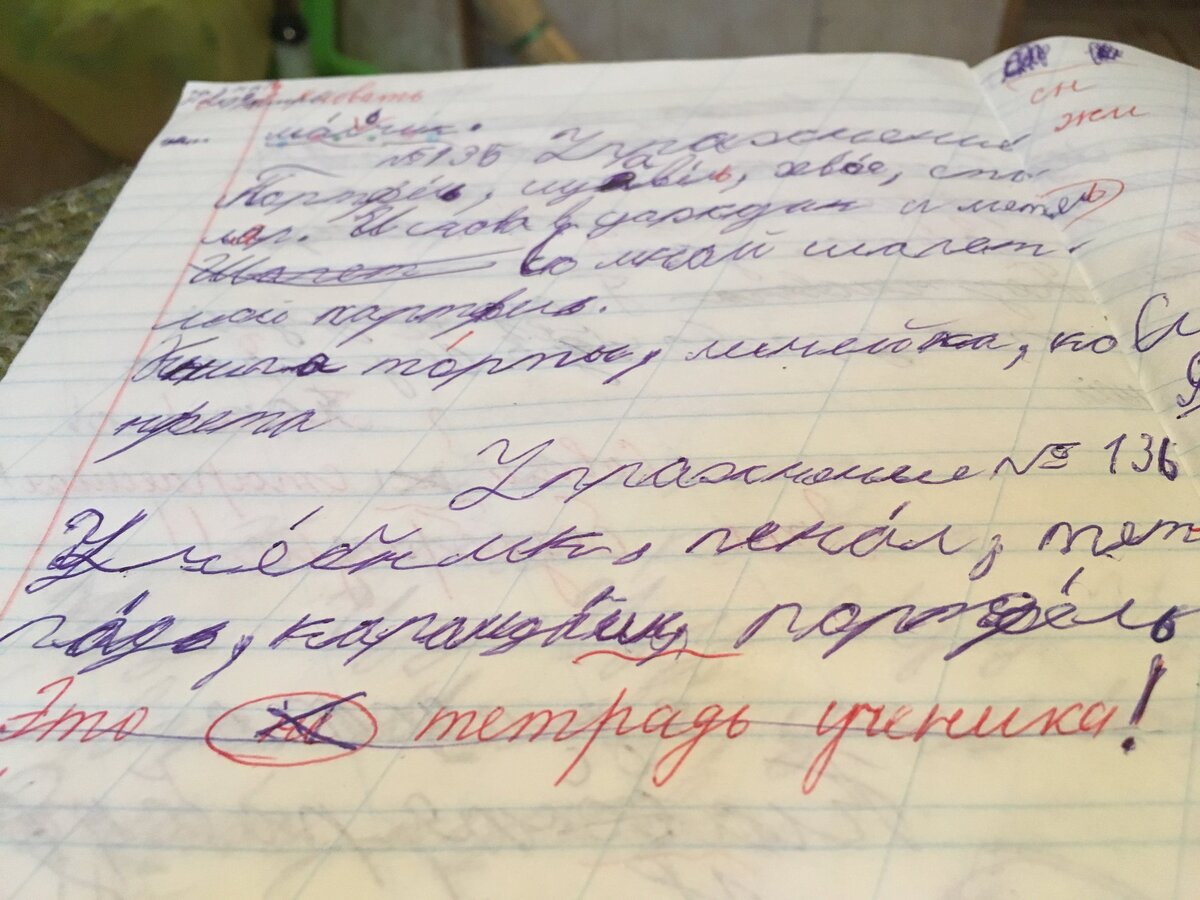 мальчик.
№135 Упражнения
Партфель, щавель, хвоя, сто
ляр. И снова в дождик и метель
Шагает Со мной шагает
мой партфель.
Книга торты, линейка, ко
нфета
Упражнение № 136
Учебник, пенал, тет
радь, карандаш, портфель
Это не тетрадь ученика!
сн
жи